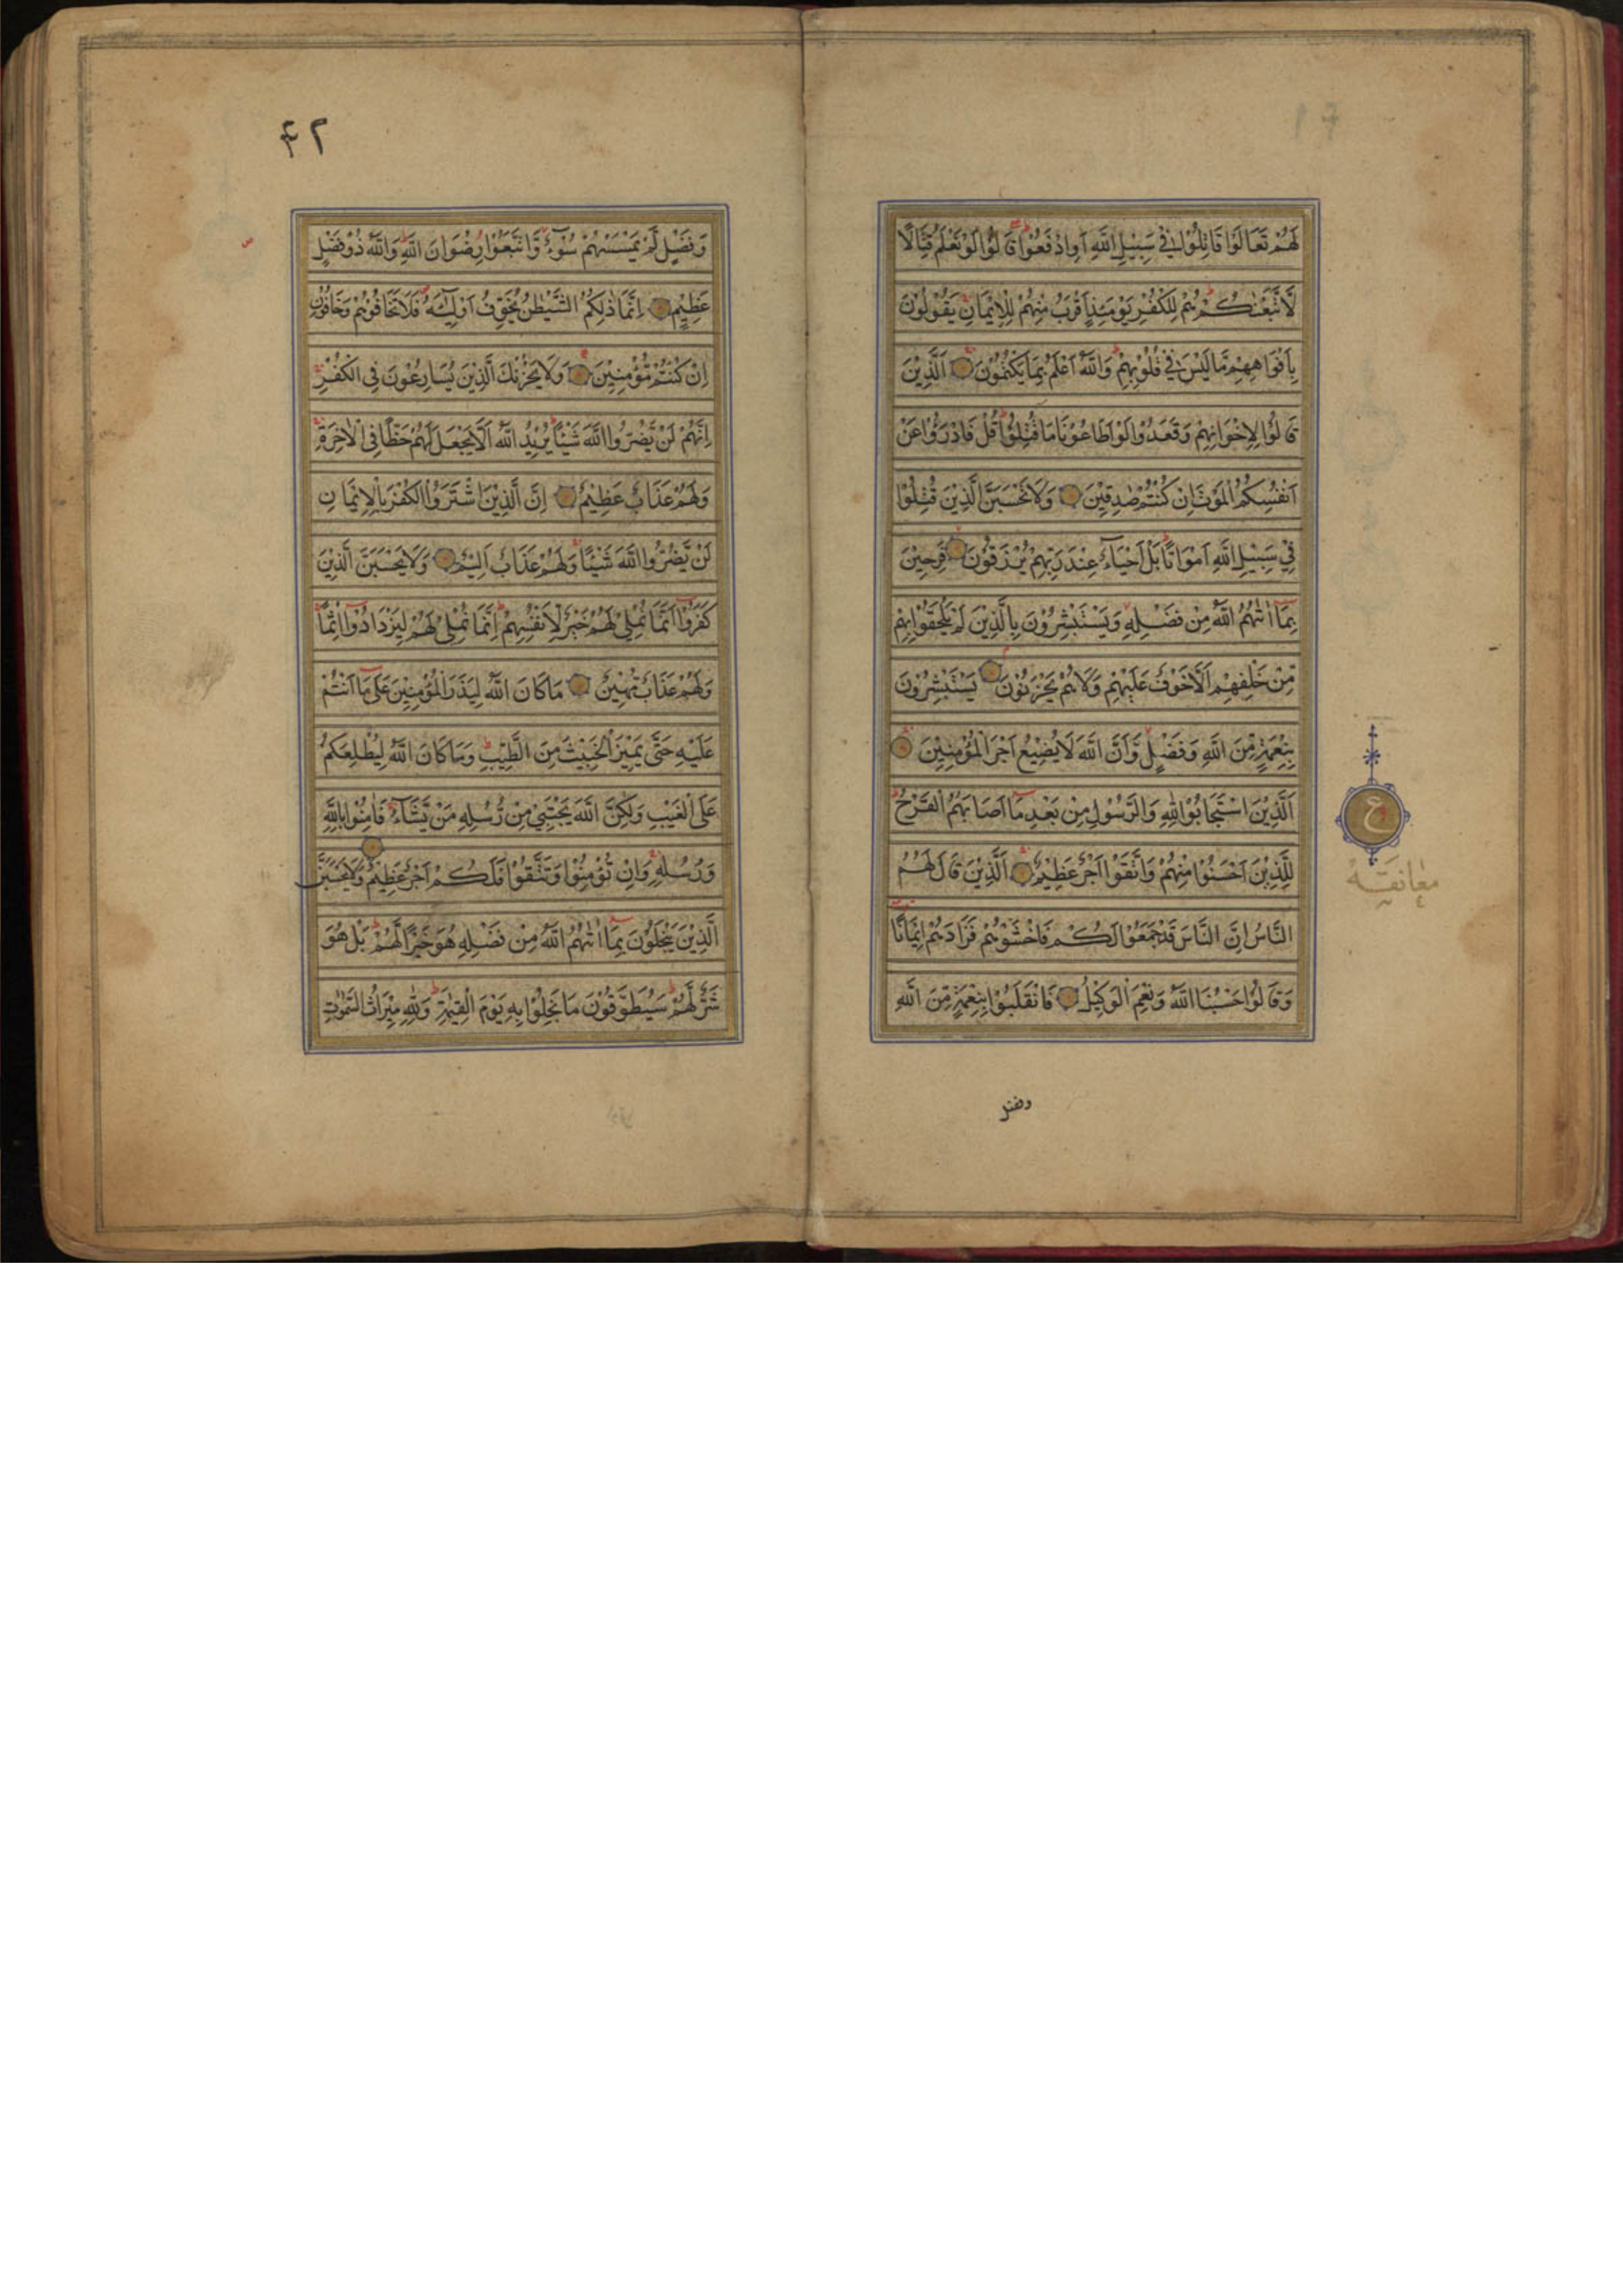 لَهُمْ تَعَالَوْا قَاتِلُوْا فِيْ سَبِيْلِ اللّٰهِ اَوِ ادْفَعُوْا قَالُوْا لَوْ نَعْلَمُ قِتَالًا
لَّا تَّبَعْنٰكُمْ هُمْ لِلْكُفْرِ يَوْمَئِذٍ اَقْرَبُ مِنْهُمْ لِلْاِيْمَانِ يَقُوْلُوْنَ
بِاَفْوَاهِهِمْ مَّا لَيْسَ فِيْ قُلُوْبِهِمْ وَاللّٰهُ اَعْلَمُ بِمَا يَكْتُمُوْنَ اَلَّذِيْنَ
قَالُوْا لِاِخْوَانِهِمْ وَقَعَدُوْا لَوْ اَطَاعُوْنَا مَا قُتِلُوْا قُلْ فَادْرَءُوْا عَنْ
اَنْفُسِكُمُ الْمَوْتَ اِنْ كُنْتُمْ صٰدِقِيْنَ وَلَا تَحْسَبَنَّ الَّذِيْنَ قُتِلُوْا
فِيْ سَبِيْلِ اللّٰهِ اَمْوَاتًا بَلْ اَحْيَآءٌ عِنْدَ رَبِّهِمْ يُرْزَقُوْنَ فَرِحِيْنَ
بِمَآ اٰتٰهُمُ اللّٰهُ مِنْ فَضْلِهٖ وَيَسْتَبْشِرُوْنَ بِالَّذِيْنَ لَمْ يَلْحَقُوْا بِهِمْ
مِّنْ خَلْفِهِمْ اَلَّا خَوْفٌ عَلَيْهِمْ وَلَا هُمْ يَحْزَنُوْنَ يَسْتَبْشِرُوْنَ
بِنِعْمَةٍ مِّنَ اللّٰهِ وَفَضْلٍ وَّاَنَّ اللّٰهَ لَا يُضِيْعُ اَجْرَ الْمُؤْمِنِيْنَ
اَلَّذِيْنَ اسْتَجَابُوْا لِلّٰهِ وَالرَّسُوْلِ مِنْ بَعْدِ مَآ اَصَابَهُمُ الْقَرْحُ
لِلَّذِيْنَ اَحْسَنُوْا مِنْهُمْ وَاتَّقَوْا اَجْرٌ عَظِيْمٌ اَلَّذِيْنَ قَالَ لَهُمُ
النَّاسُ اِنَّ النَّاسَ قَدْ جَمَعُوْا لَكُمْ فَاخْشَوْهُمْ فَزَادَهُمْ اِيْمَانًا
وَقَالُوْا حَسْبُنَا اللّٰهُ وَنِعْمَ الْوَكِيْلُ فَانْقَلَبُوْا بِنِعْمَةٍ مِّنَ اللّٰهِ
وفضل
ع
معانقـه
٤٢
وَفَضْلٍ لَّمْ يَمْسَسْهُمْ سُوْٓءٌ وَّاتَّبَعُوْا رِضْوَانَ اللّٰهِ وَاللّٰهُ ذُوْ فَضْلٍ
عَظِيْمٍ اِنَّمَا ذٰلِكُمُ الشَّيْطٰنُ يُخَوِّفُ اَوْلِيَآءَهٗ فَلَا تَخَافُوْهُمْ وَخَافُوْنِ
اِنْ كُنْتُمْ مُّؤْمِنِيْنَ وَلَا يَحْزُنْكَ الَّذِيْنَ يُسَارِعُوْنَ فِي الْكُفْرِ
اِنَّهُمْ لَنْ يَّضُرُّوا اللّٰهَ شَيْئًا يُرِيْدُ اللّٰهُ اَلَّا يَجْعَلَ لَهُمْ حَظًّا فِي الْاٰخِرَةِ
وَلَهُمْ عَذَابٌ عَظِيْمٌ اِنَّ الَّذِيْنَ اشْتَرَوُا الْكُفْرَ بِالْاِيْمَانِ
لَنْ يَّضُرُّوا اللّٰهَ شَيْئًا وَلَهُمْ عَذَابٌ اَلِيْمٌ وَلَا يَحْسَبَنَّ الَّذِيْنَ
كَفَرُوْٓا اَنَّمَا نُمْلِيْ لَهُمْ خَيْرٌ لِّاَنْفُسِهِمْ اِنَّمَا نُمْلِيْ لَهُمْ لِيَزْدَادُوْٓا اِثْمًا
وَلَهُمْ عَذَابٌ مُّهِيْنٌ مَا كَانَ اللّٰهُ لِيَذَرَ الْمُؤْمِنِيْنَ عَلٰى مَآ اَنْتُمْ
عَلَيْهِ حَتّٰى يَمِيْزَ الْخَبِيْثَ مِنَ الطَّيِّبِ وَمَا كَانَ اللّٰهُ لِيُطْلِعَكُمْ
عَلَى الْغَيْبِ وَلٰكِنَّ اللّٰهَ يَجْتَبِيْ مِنْ رُّسُلِهٖ مَنْ يَّشَآءُ فَاٰمِنُوْا بِاللّٰهِ
وَرُسُلِهٖ وَاِنْ تُؤْمِنُوْا وَتَتَّقُوْا فَلَكُمْ اَجْرٌ عَظِيْمٌ وَلَا يَحْسَبَنَّ
الَّذِيْنَ يَبْخَلُوْنَ بِمَآ اٰتٰهُمُ اللّٰهُ مِنْ فَضْلِهٖ هُوَ خَيْرًا لَّهُمْ بَلْ هُوَ
شَرٌّ لَّهُمْ سَيُطَوَّقُوْنَ مَا بَخِلُوْا بِهٖ يَوْمَ الْقِيٰمَةِ وَلِلّٰهِ مِيْرَاثُ السَّمٰوٰتِ